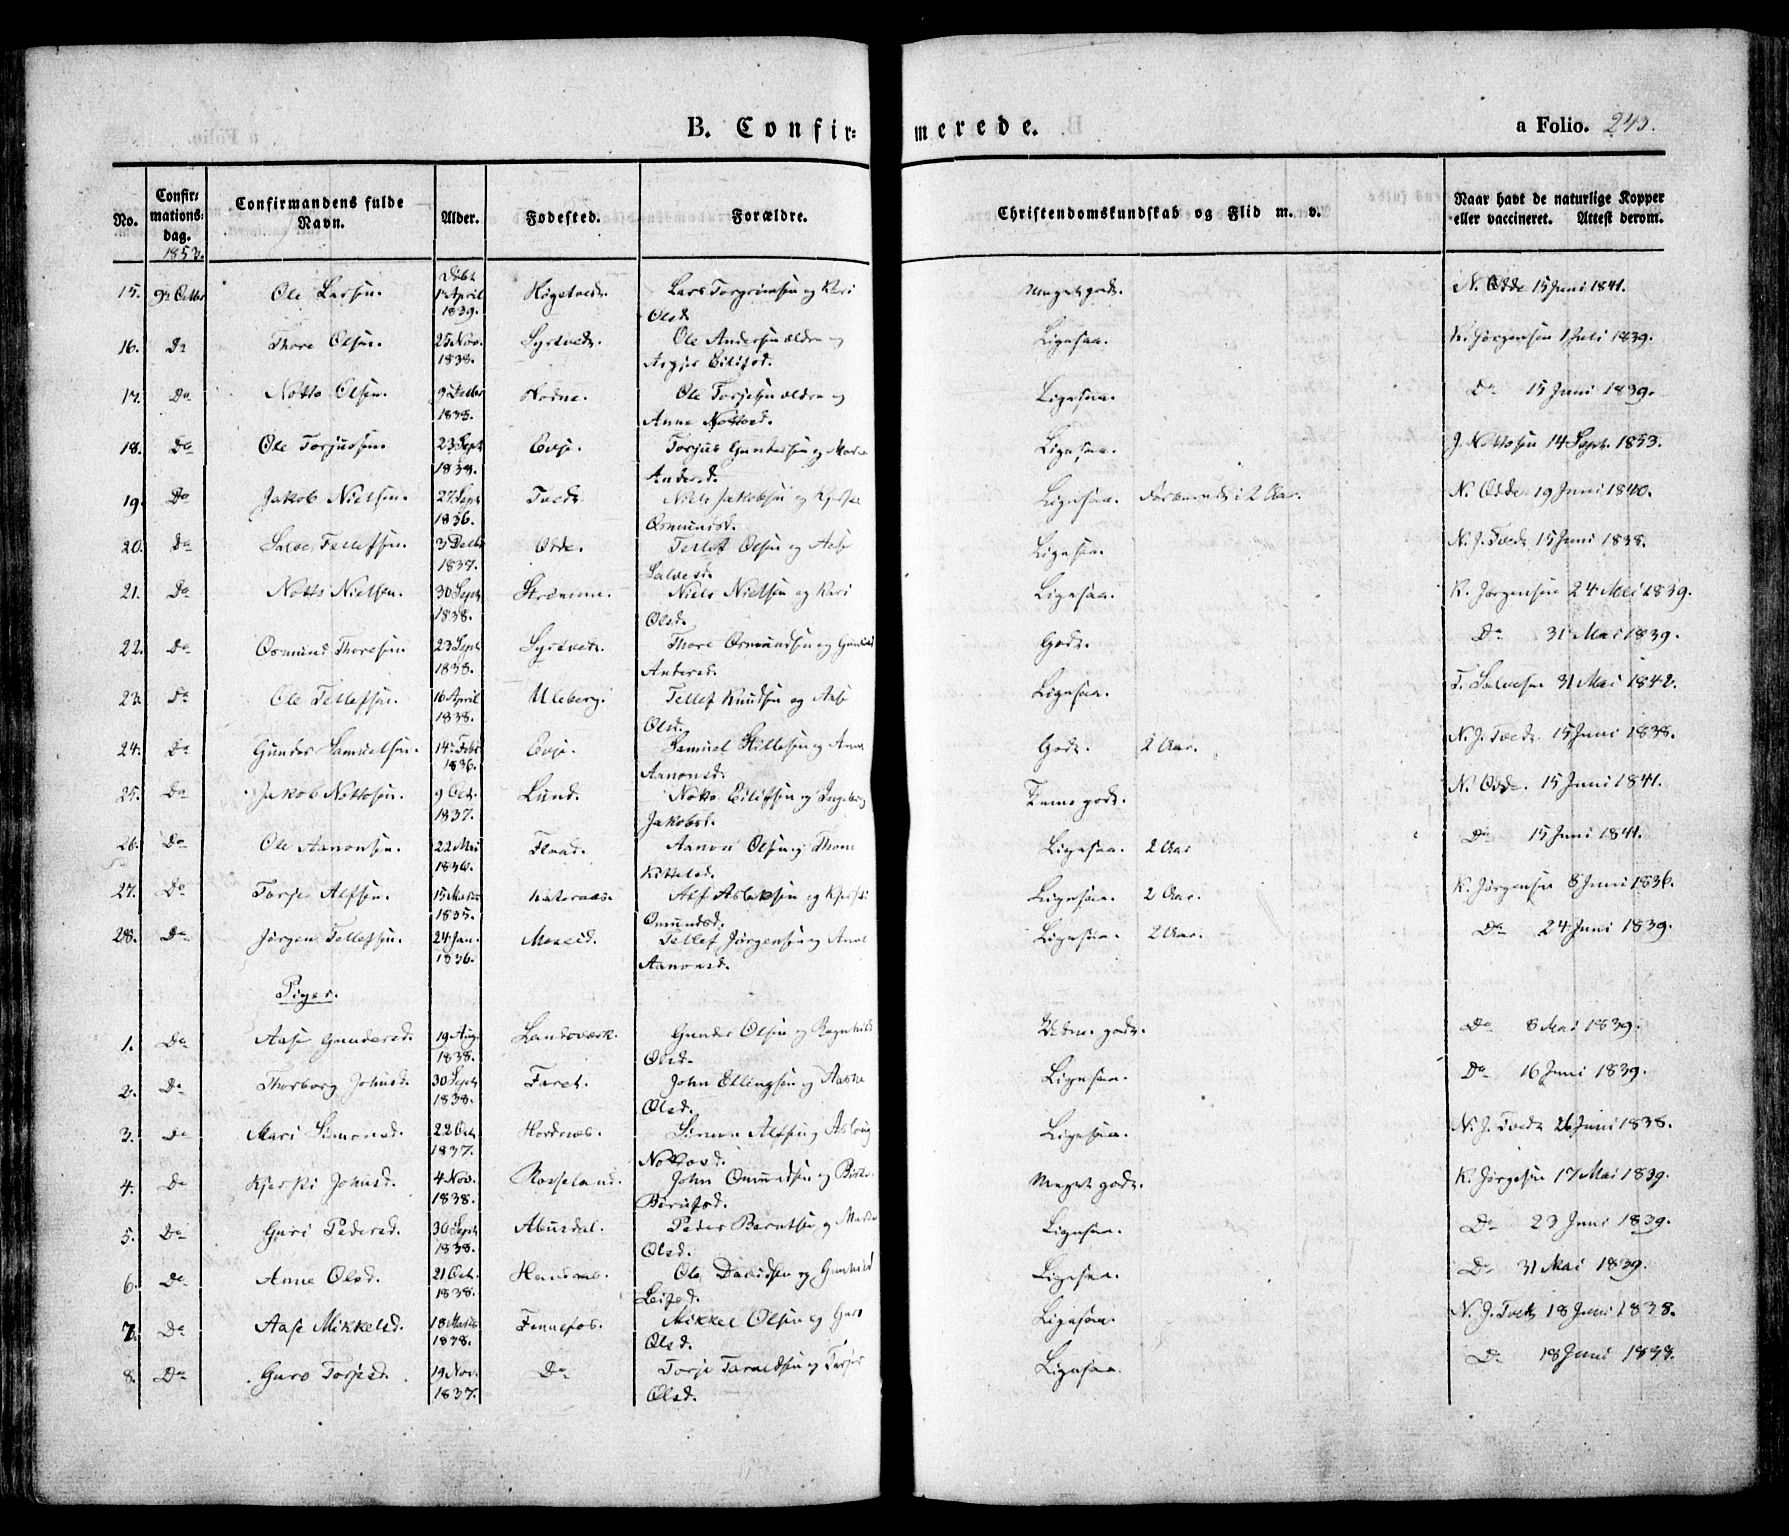 B. Confir=
merede.
a Folio. 243.
No.
Confir=
mations=
dag.
1853.
Confirmandens fulde
Navn.
Alder.
Fødested.
Forældre.
Christendomskundskab og Flid m. v.
Naar havt de naturlige Kopper
eller vaccineret. Attest derom.
Døbt
15. 9de Octbr Ole Larsen. April Høgetvedt. Lars Torgrimsen og Kari Meget godt. N. Odde 15 Juni 1841.
1839. Olsd.
16. Do Thore Olsen. 25 Nov. Syrtvedt. Ole Andersen ældre og Ligesaa. K. Jørgensen 1 Juli 1839.
1838. Eilifsd.
17. Do Notto Olsen. 9 Decbr Hodne. Ole Torjesen ældre og Ligesaa. Do 15 Juni 1839.
1838. Anne Nottosd.
18. Do Ole Torjussen. 23 Sept Evje. Torjus Gundersen og Ligesaa. J. Nottosen 14 Sept. 1853.
1838. Andersd.
19. Do Jakob Nielsen. 27 Sept Tvedt. Niels Jakobsen og Ligesaa. i 2 Aar. N. Odde 19 Juni 1840.
1836. Osmundsd.
20. Do Salve Tellefsen. 3 Decbr Odde. Tellef Olsen og Aase Ligesaa. N. J. Tvedt 15 Juni 1838.
1837. Salvesd.
21. Do Notto Nielsen. 30 Sept Strømme. Niels Nielsen og Kari Ligesaa. K. Jørgensen 24 Mai 1839.
1838. Olsd.
22. Do Osmund Thoresen. 23 Sept Syrtvedt. Thore Osmundsen og Gunhild Godt. Do 31 Mai 1839.
1838. Andersd.
23. Do Ole Tellefsen. 16 April Uleberg. Tellef Knudsen og Aase Ligesaa. T. Salvesen 31 Mai 1842.
1838. Olsd.
24. Do Gunder Samuelsen. 14 Febr Evje. Samuel og Anne Godt. 2 Aar. N. J. Tvedt 15 Juni 1838.
1836. Aanonsd.
25. Do Jakob Nottosen. 9 Oct. Lund. Noto Eilifsen og Ingeborg godt. N. Odde. 15 Juni 1841.
1837. Jakobsd.
26. Do Ole Aanonsen. 22 Mai Flaad. Aanon Olsen og Thone Ligesaa. 2 Aar Do 15 Juni 1841.
1836. Kittelsd.
27. Do Torje Alfsen. 15 Marts Alf Aslaksen og Ligesaa. 2 Aar. K. Jørgensen 8 Juni 1836.
1835. Omundsd.
28. Do Jørgen Tellefsen. 24 Jan. Moseid. Tellef Jørgensen og Anne Ligesaa. 2 Aar. Do 24 Juni 1839.
1836. Aanonsd.
Piger.
1. Do Aase Gundersd. 19 Aug. Landsværk. Gunder Olsen og Ragnhild godt. Do 8 Mai 1839.
1838. Olsd.
2. Do Thorborg Johnsd. 30 Sept Faret. John Ellingsen og Ligesaa. Do 16 Juni 1839.
1838. Olsd.
3. Do Mari Simonsd. 22 Oct. Hordnæs. Simon Alfsen og Aslaug Ligesaa. N. J. Tvedt 26 Juni 1838.
1837. Nottosd.
4. Do Kjersti Johnsd. 4 Nov. Rosseland. John Omundsen og Meget godt. K. Jørgesen 17 Mai 1839.
1838.
5. Do Guri Pedersd. 30 Sept Abusdal. Peder Berntsen og Ligesaa. Do 23 Juni 1839.
1838. Olsd.
6. Do Anne Olsd. 21 Oct. Ole Davidsen og Gunhild Ligesaa. Do 31 Mai 1839.
1838. Leifsd.
7. Do Aase Mikkelsd. 18 Marts Fennefos. Mikkel Olsen og Guro Ligesaa. N. J. Tvedt 18 Juni 1838.
1838. Olsd.
8. Do Guro Torjesd. 19 Nov. Do Torje Taraldsen og Ligesaa. Do 18 Juni 1838.
1837. Olsd.